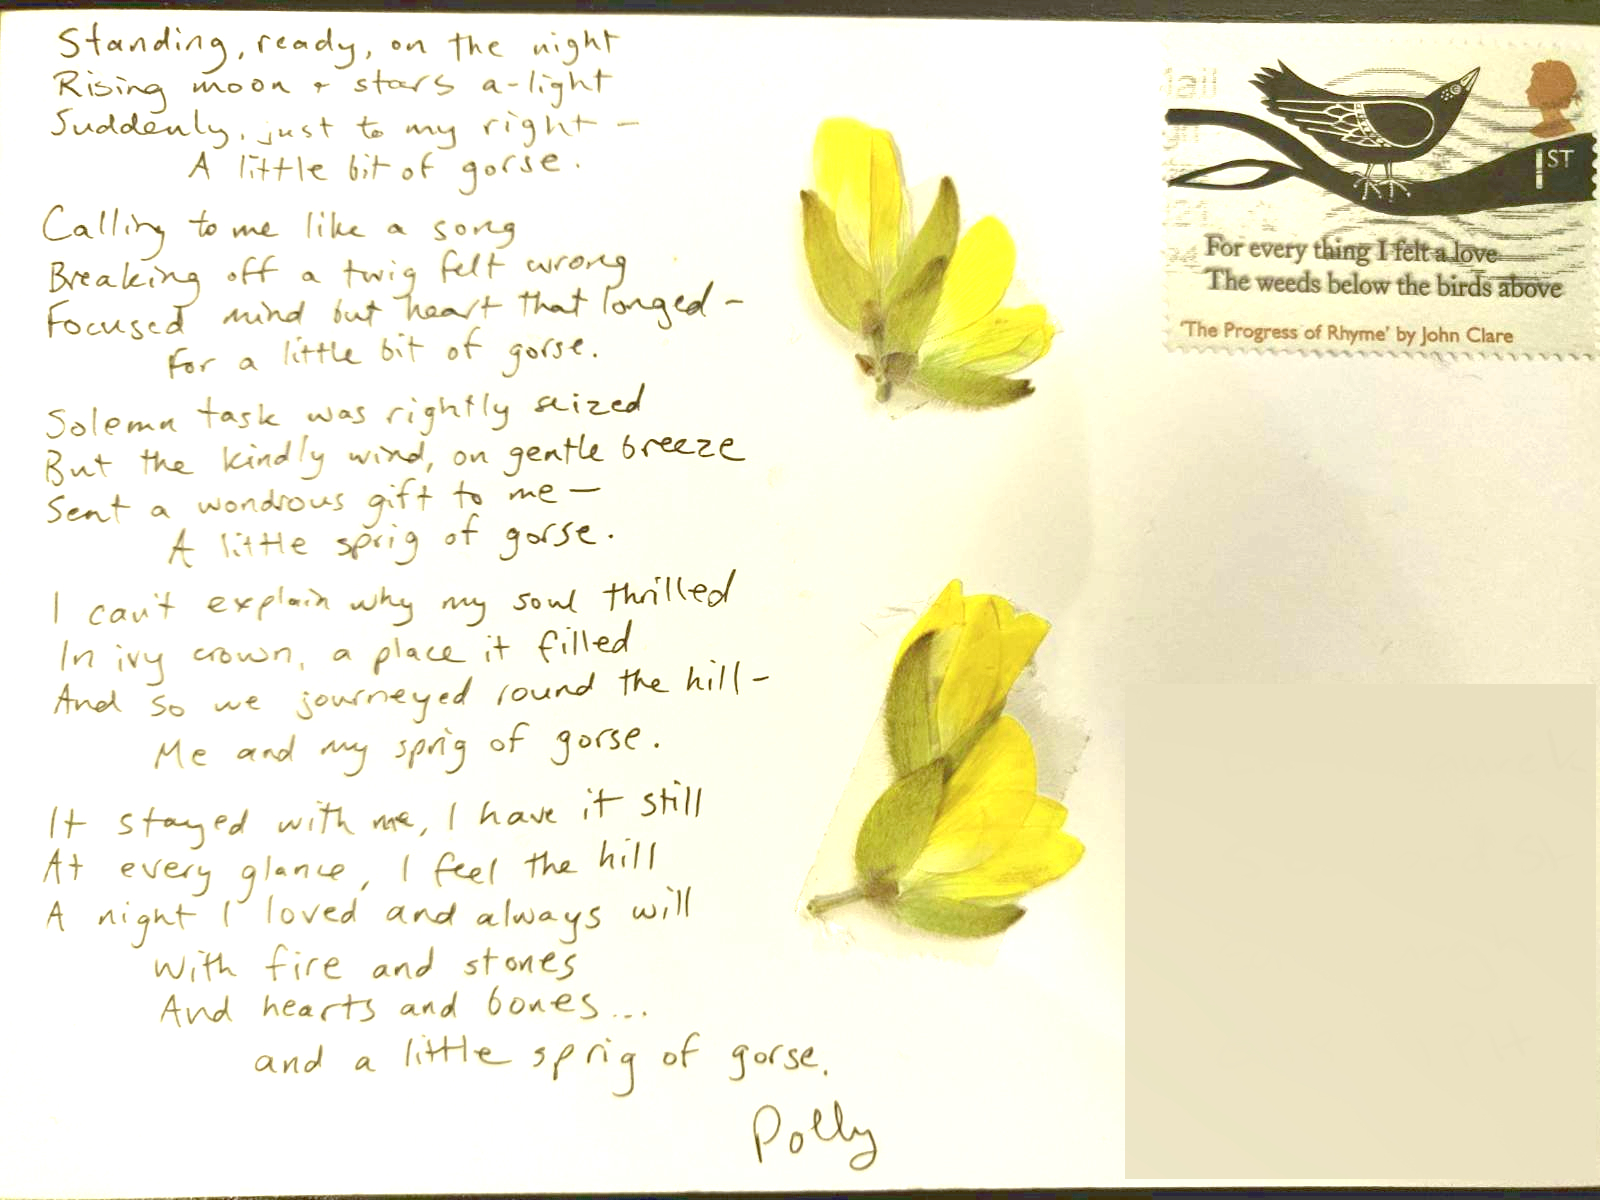 Standing, ready, on the night
Rising moon + stars a-light
Suddenly, just to my right -
A little bit of gorse.
Calling to me like a song
Breaking off a twig felt wrong
Focused mind but heart that longed -
For a little bit of gorse.
Solemn task was rightly seized
But the kindly wind, on gentle breeze
Sent a wondrous gift to me -
A little sprig of gorse.
I can't explain why my soul thrilled
In ivy crown, a place it filled
And so we journeyed round the hill -
Me and my sprig of gorse.
It stayed with me, I have it still
At every glance, I feel the hill
A night I loved and always will
With fire and stones
And hearts and bones...
and a little sprig of gorse.
Polly
Mail
1ST
For every thing I felt a love
The weeds below the birds above
'The Progress of Rhyme' by John Clare